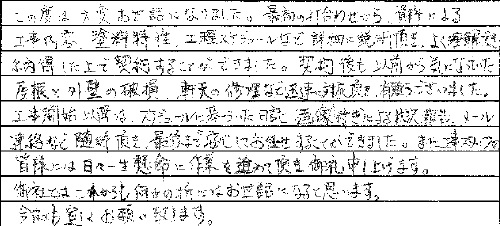 この度は大変お世話になりました。最初の打合わせから、資料による
工事内容、塗料特性、工程スケジュールなど詳細に説明頂き、よく理解
納得した上で契約することができました。契約後も以前から気になった
屋根と外壁の破損、軒天の修理など迅速な対応頂き、有難うございました。
工事開始以降は、スケジュールに基づいた日記、画像付きによる状況報告、メール
連絡など随時頂き、最後まで安心してお任せすることができました。また
皆様には日々一生懸命に作業を進めて頂き御礼申し上げます。
御社とはこれからも何かの折にはお世話になると思います。
今後も宜しくお願い致します。